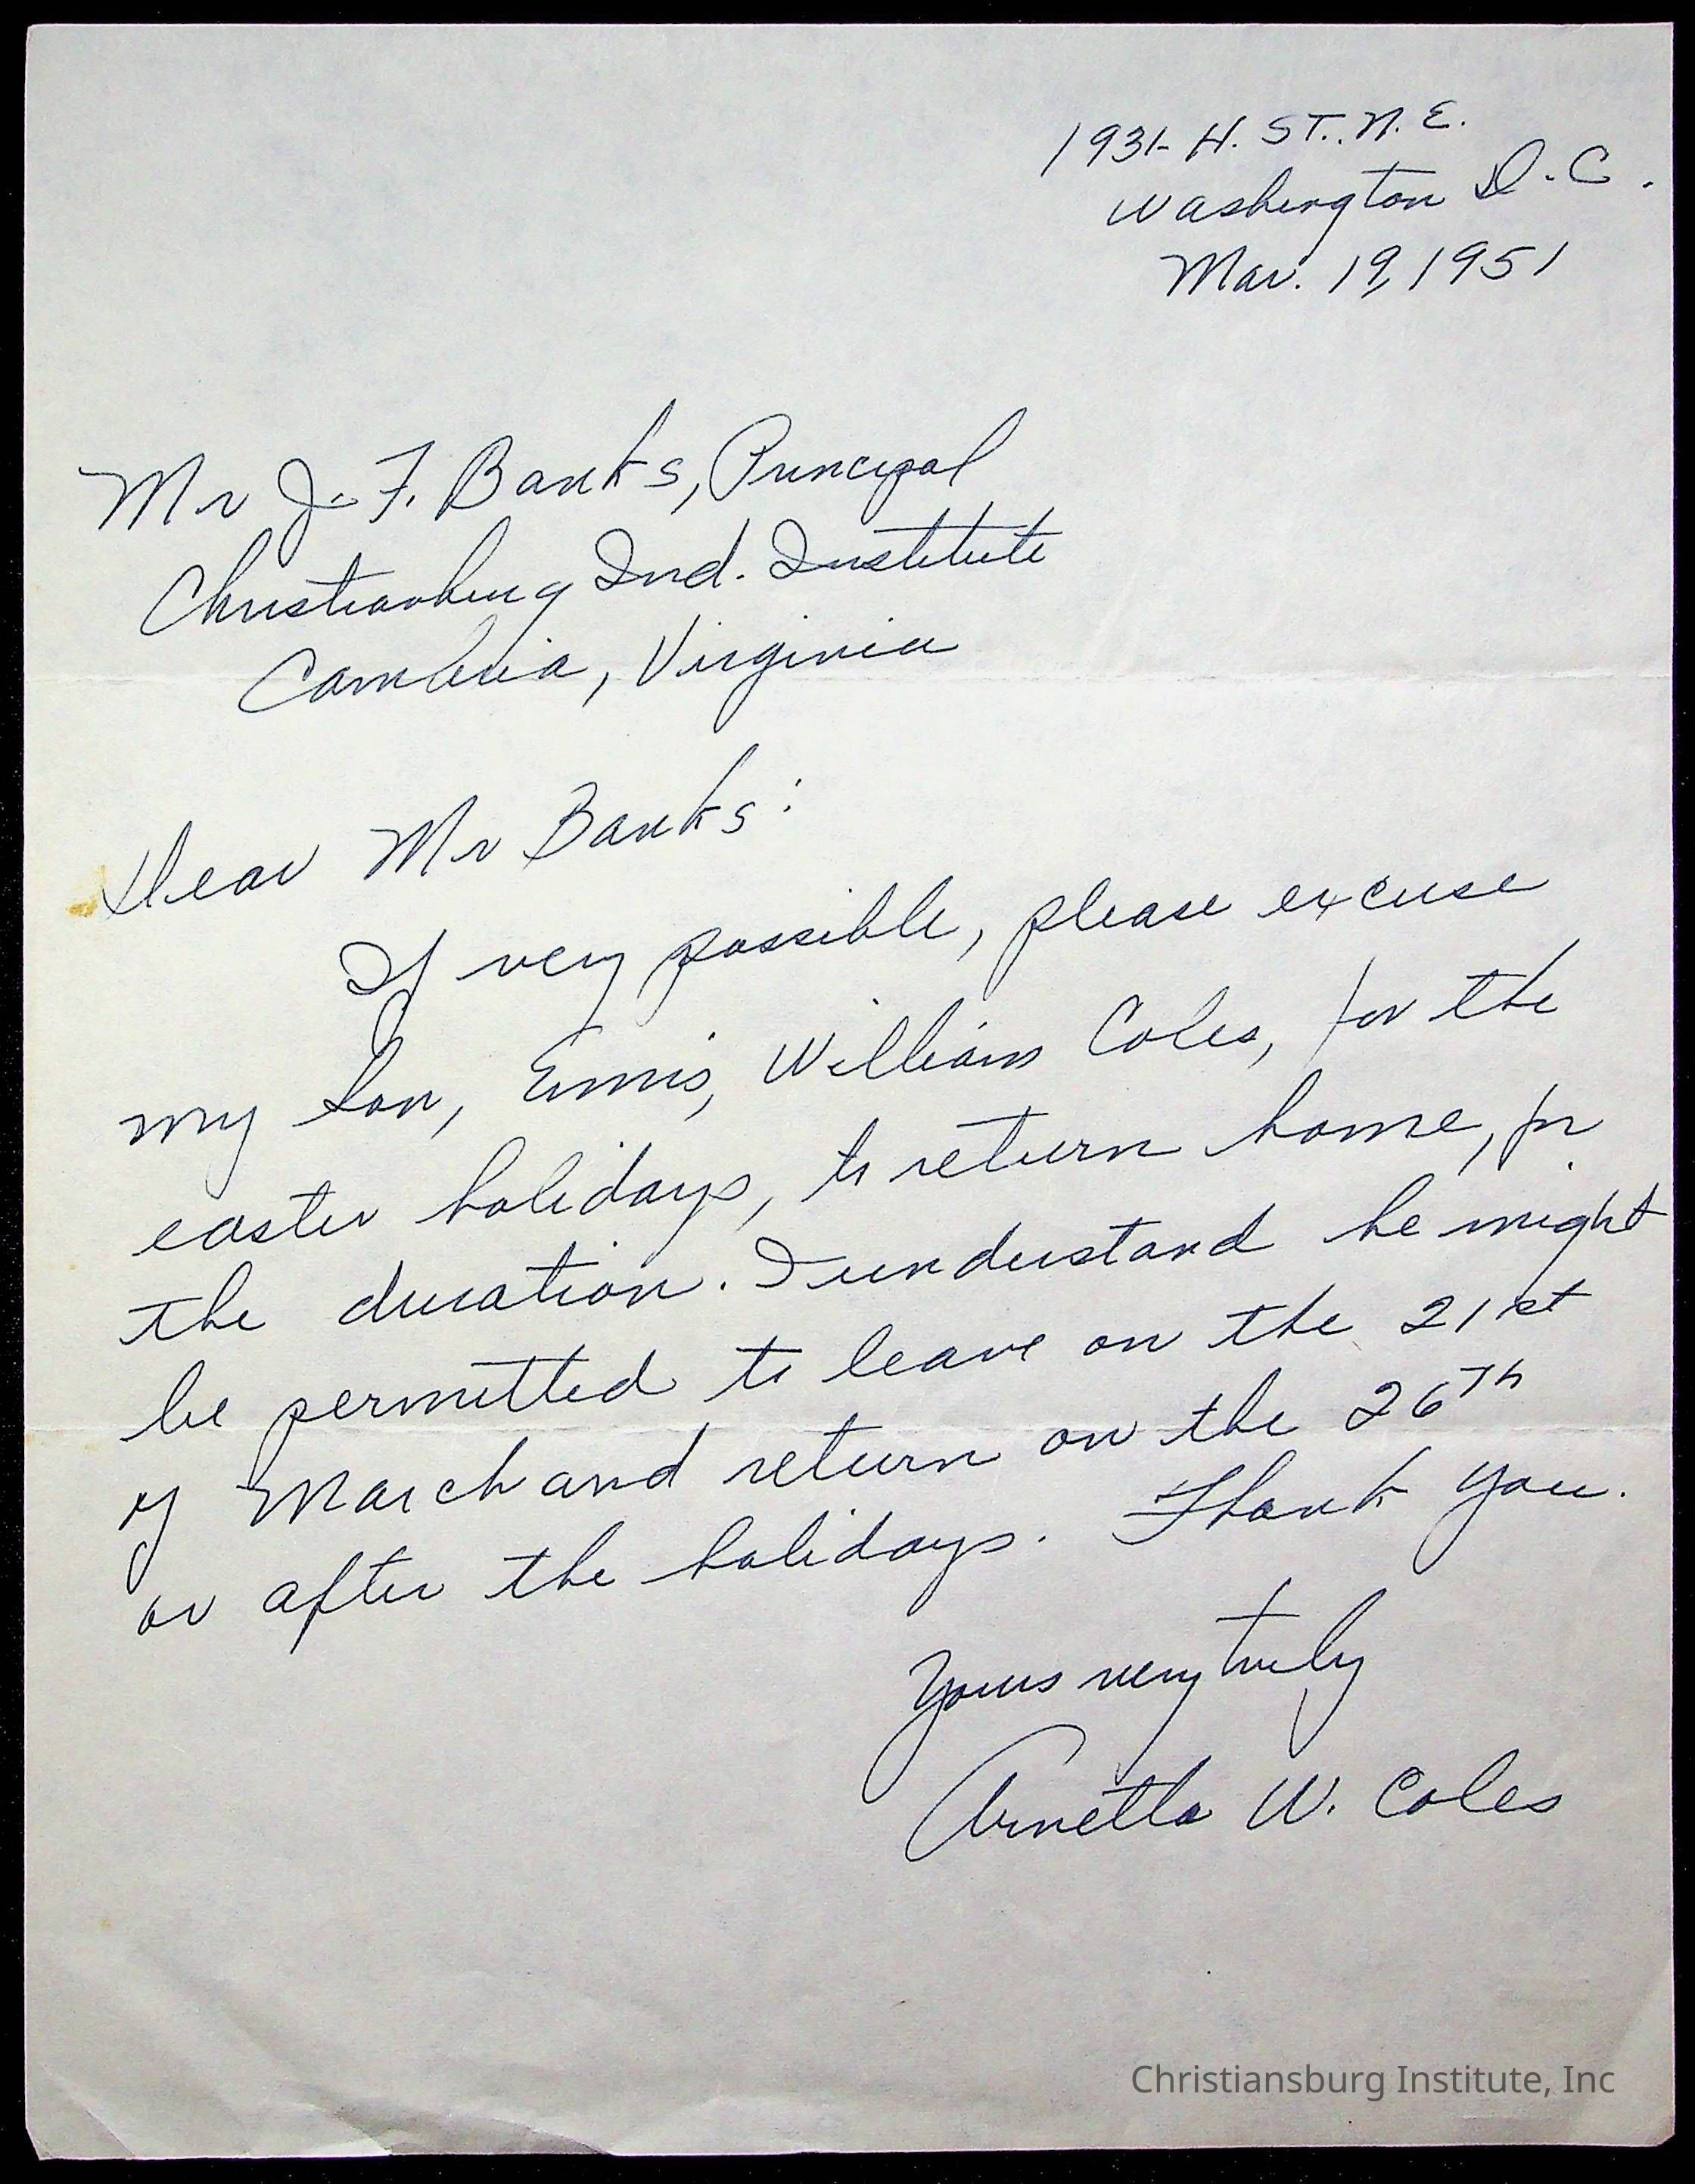 1931- H. ST. N. E.
Washington D. C.
Mar. 19, 1951
Mr J. F. Banks, Principal
Christianburg Ind. Institute
Cambria, Virginia
Dear Mr Banks:
If very possible, please excuse
my son, Ennis, William Coles, for the
easter holidays, to return home, for
the duration. I understand he might
be permitted to leave on the 21st
of March and return on the 26th
or after the holidays. Thank you.
Yours very truly
Arnetta W. Coles
Christiansburg Institute, Inc